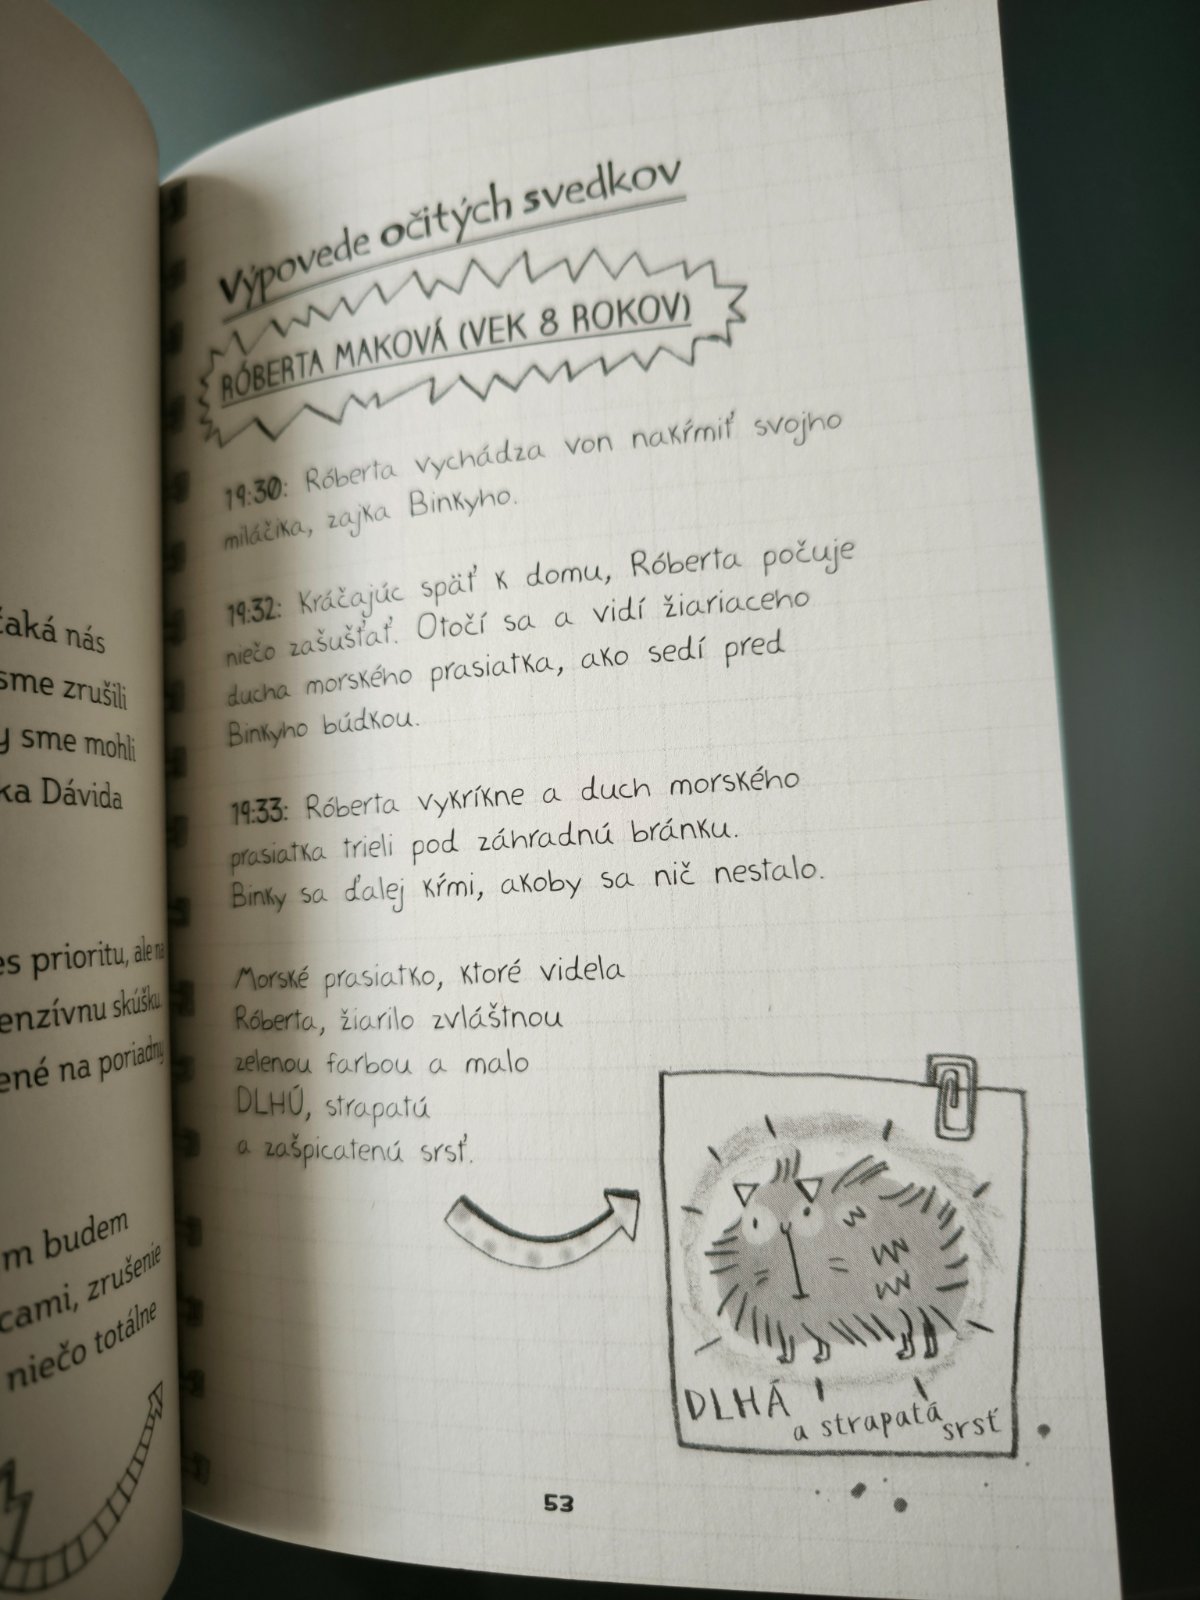 čaká nás
sme zrušili
y sme mohli
ka Dávida
es prioritu, ale na
enzívnu skúšku
ené na poriadny
m budem
cami, zrušenie
niečo totálne
Výpovede očitých svedkov
RÓBERTA MAKOVÁ (VEK 8 ROKOV)
19:30: Róberta vychádza von nakŕmiť svojho
miláčika, zajka Binkyho.
19:32: Kráčajúc späť k domu, Róberta počuje
niečo zašušťať. Otočí sa a vidí žiariaceho
ducha morského prasiatka, ako sedí pred
Binkyho búdkou.
19:33: Róberta vykríkne a duch morského
prasiatka trieli pod záhradnú bránku.
Binky sa ďalej kŕmi, akoby sa nič nestalo.
Morské prasiatko, ktoré videla
Róberta, žiarilo zvláštnou
zelenou farbou a malo
DLHÚ, strapatú
a zašpicatenú srsť.
DLHÁ
a strapatá
srsť
53